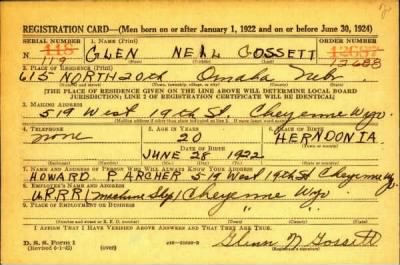 REGISTRATION CARD—(Men born on or after January 1, 1922 and on or before June 30, 1924)
SERIAL NUMBER 1. NAME (Print) ORDER NUMBER
N 119 GLEN NEAL GOSSETT 12688
2. PLACE OF RESIDENCE (Print)
615 NORTH 20th Omaha Nebr
(Number and street) (Town, township, village, or city) (County) (State)
[THE PLACE OF RESIDENCE GIVEN ON THE LINE ABOVE WILL DETERMINE LOCAL BOARD
JURISDICTION; LINE 2 OF REGISTRATION CERTIFICATE WILL BE IDENTICAL]
3. MAILING ADDRESS
519 West St. Cheyenne Wyo.
4. TELEPHONE 5. AGE IN YEARS 6. PLACE OF BIRTH
none 20 HERNDON IA.
DATE OF BIRTH
JUNE 28 1922
7. NAME AND ADDRESS OF PERSON WHO WILL ALWAYS KNOW YOUR ADDRESS
HOWARD ARCHER 519 West 19th St Cheyenne Wyo
8. EMPLOYER'S NAME AND ADDRESS
U.P.R.R. (Machine Shop) Cheyenne Wyo
9. PLACE OF EMPLOYMENT OR BUSINESS
" "
(Number and street or R. F. D. number) (Town) (County) (State)
I AFFIRM THAT I HAVE VERIFIED ABOVE ANSWERS AND THAT THEY ARE TRUE.
D. S. S. Form 1
(Revised 6-1-42) (over) Glenn N Gossett